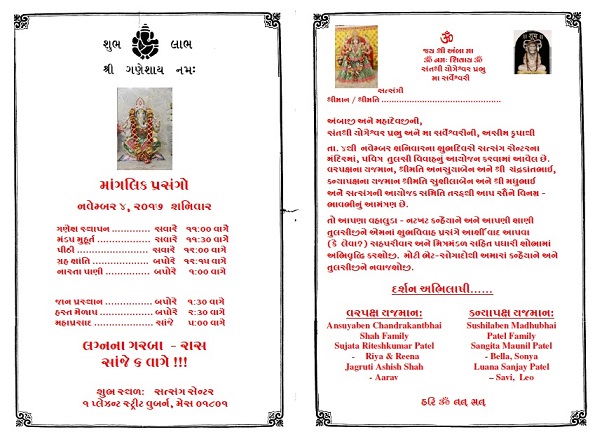 શુભ લાભ
શ્રી ગણેશાય નમઃ
માંગલિક પ્રસંગો
નવેમ્બર ૪, ૨૦૧૭ શનિવાર
ગણેશ સ્થાપન .............. સવારે ૧૧:૦૦ વાગે
મંડપ મુહૂર્ત ................ સવારે ૧૧:૩૦ વાગે
પીઠી ........................ સવારે ૧૨:૦૦ વાગે
ગ્રહ શાંતિ .................. બપોરે ૧૨:૧૫ વાગે
નાસ્તા પાણી .............. બપોરે ૧:૦૦ વાગે
જાન પ્રસ્થાન .............. બપોરે ૧:૩૦ વાગે
હસ્ત મેળાપ ............... બપોરે ૨:૩૦ વાગે
મહાપ્રસાદ ................. સાંજે ૫:૦૦ વાગે
લગ્નના ગરબા - રાસ
સાંજે ૬ વાગે !!!
શુભ સ્થળ: સત્સંગ સેન્ટર
૧ પ્લેઝન્ટ સ્ટ્રીટ વુબર્ન, મેસ ૦૧૮૦૧
ૐ
જય શ્રી અંબા મા
ૐ નમઃ શિવાય ૐ
સંતશ્રી યોગેશ્વર પ્રભુ
મા સર્વેશ્વરી
સત્સંગી
શ્રીમાન / શ્રીમતિ ................................................
અંબાજી અને મહાદેવજીની,
સંતશ્રી યોગેશ્વર પ્રભુ અને મા સર્વેશ્વરીની, અસીમ કૃપાથી
તા. ૪થી નવેમ્બર શનિવારના શુભદિવસે સત્સંગ સેન્ટરના
મંદિરમાં, પવિત્ર તુલસી વિવાહનું આયોજન કરવામાં આવેલ છે.
વરપક્ષના યજમાન, શ્રીમતિ અનસુયાબેન અને શ્રી ચંદ્રકાંતભાઈ,
કન્યાપક્ષના યજમાન શ્રીમતિ સુશીલાબેન અને શ્રી મધુભાઈ
અને સત્સંગની આયોજક સમિતિ તરફથી આપ સૌને વિનમ્ર -
ભાવભીનું આમંત્રણ છે.
તો આપણા વહાલુડા - નટખટ કન્હૈયાને અને આપણી શાણી
તુલસીજીને એમના શુભવિવાહ પ્રસંગે આશીર્વાદ આપવા
(કે લેવા?) સહપરીવાર અને મિત્રમંડળ સહિત પધારી શોભામાં
અભિવૃધ્ધિ કરશોજી. મોટી ભેટ-સોગાદોથી અમારાં કન્હૈયાને અને
તુલસીજીને નવાજશોજી.
દર્શન અભિલાષી......
વરપક્ષ યજમાન:
Ansuyaben Chandrakantbhai
Shah Family
Sujata Riteshkumar Patel
- Riya & Reena
Jagruti Ashish Shah
- Aarav
કન્યાપક્ષ યજમાન:
Sushilaben Madhubhai
Patel Family
Sangita Maunil Patel
- Bella, Sonya
Luana Sanjay Patel
– Savi, Leo
હરિ ૐ તત્ સત્